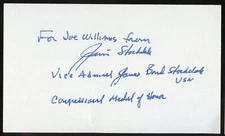 For Joe Williams from
Jim Stockdale
Vice Admiral James Bond Stockdale
USN
Congressional Medal of Honor